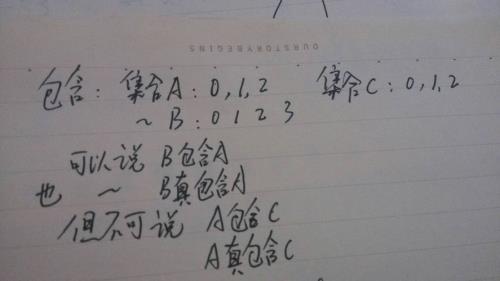 OURSTORYBEGINS
包含：集合A：0,1,2 集合C：0,1,2
～ B：0 1 2 3
可以说 B包含A
也 ～ B真包含A
但不可说 A包含C
A真包含C